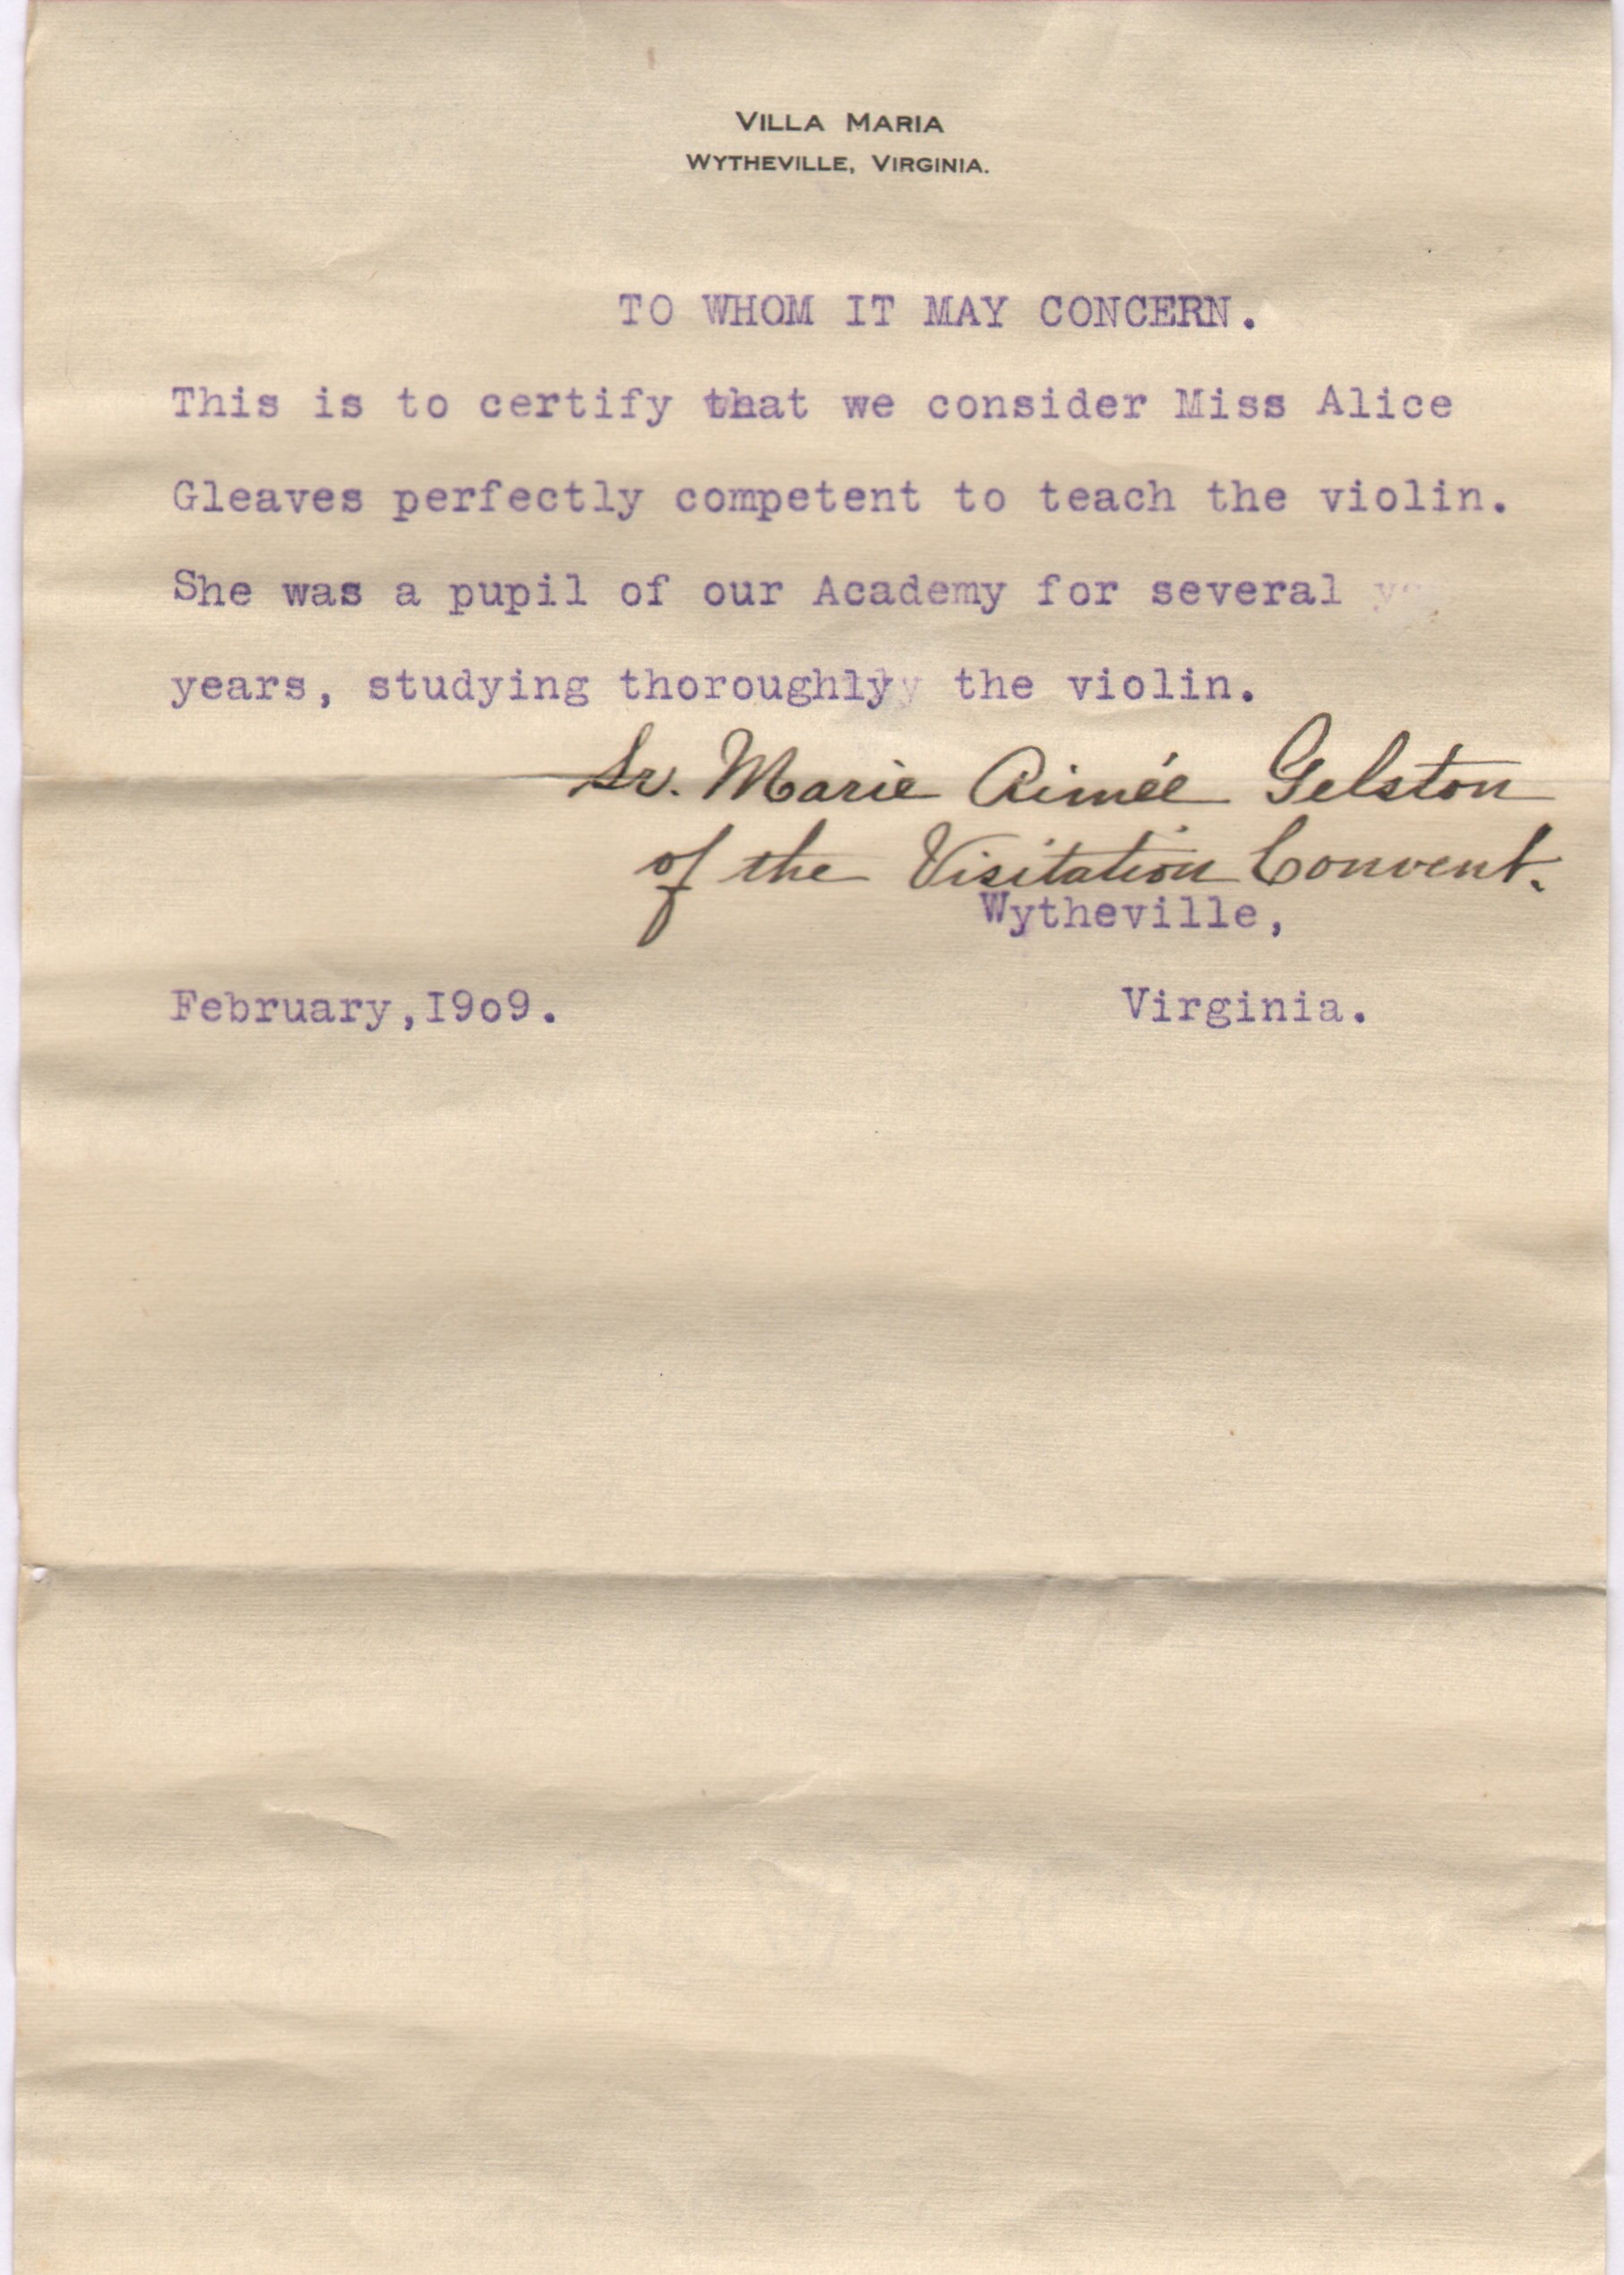 VILLA MARIA
WYTHEVILLE, VIRGINIA.
TO WHOM IT MAY CONCERN.
This is to certify that we consider Miss Alice
Gleaves perfectly competent to teach the violin.
She was a pupil of our Academy for several
years, studying thoroughly the violin.
Sr. Marie Aimée Gelston
of the Visitation Convent.
Wytheville,
February,I9o9. Virginia.